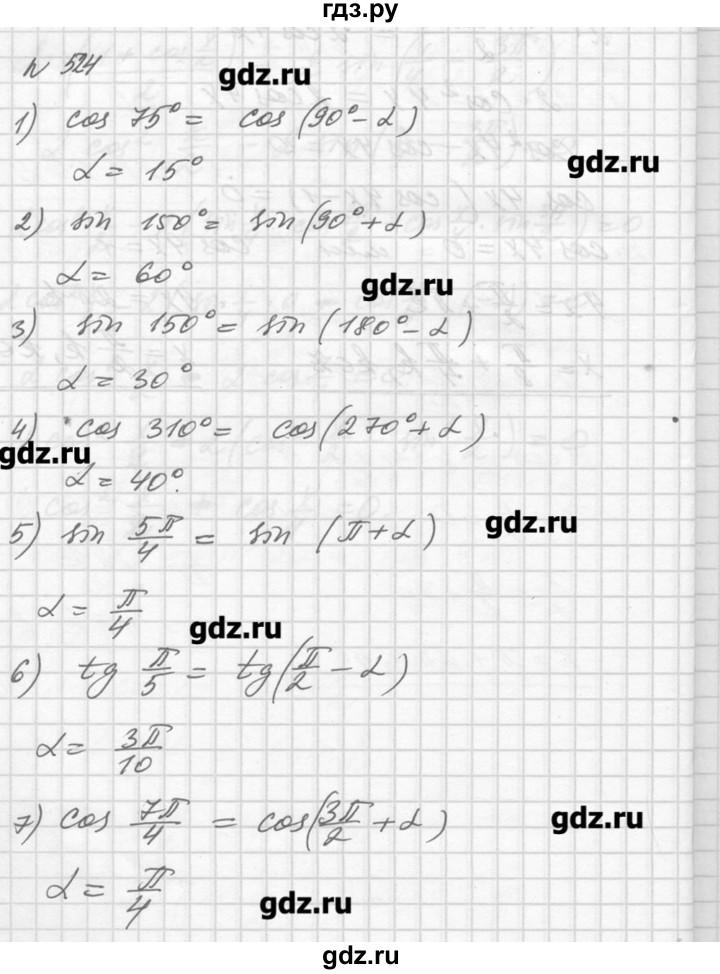 гдз.ру
N 524
gdz.ru
1) cos 75° = cos (90° - α)
gdz.ru
α = 15°
2) sin 150° = sin (90° + α)
α = 60°
gdz.ru
3) sin 150° = sin (180° - α)
α = 30°
4) cos 310° = cos (270° + α)
gdz.ru
α = 40°.
gdz.ru
5) sin 5π/4 = sin (π + α)
α = π/4
gdz.ru
6) tg π/5 = tg (π/2 - α)
α = 3π/10
7) cos 7π/4 = cos (3π/2 + α)
gdz.ru
α = π/4
gdz.ru
gdz.ru